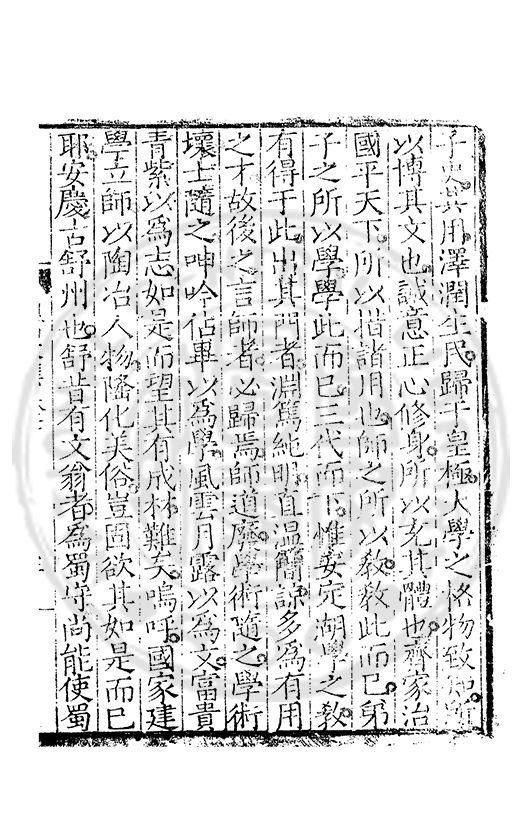 子史其用澤潤生民歸于皇極大學之格物致知所
以博其文也誠意正心修身所以充其體也齊家治
國平天下所以措諸用也師之所以敎敎此而已弟
子之所以學學此而已三代而下惟安定湖學之敎
有得于此出其門者淵篤純明直温簡諒多爲有用
之才故後之言師者必歸焉師道廢學術隨之學術
壞士隨之呻吟佔畢以爲學風雲月露以爲文富貴
青紫以爲志如是而望其有成材難矣嗚呼國家建
學立師以陶冶人物隆化美俗豈固欲其如是而已
耶安慶古舒州也舒昔有文翁者爲蜀守尚能使蜀